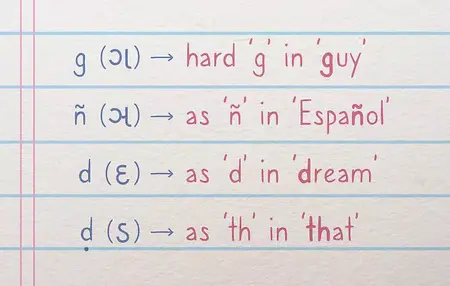 g (ગ) → hard 'g' in 'guy'
ñ (ઞ) → as 'ñ' in 'Español'
d (દ) → as 'd' in 'dream'
ḍ (ડ) → as 'th' in 'that'